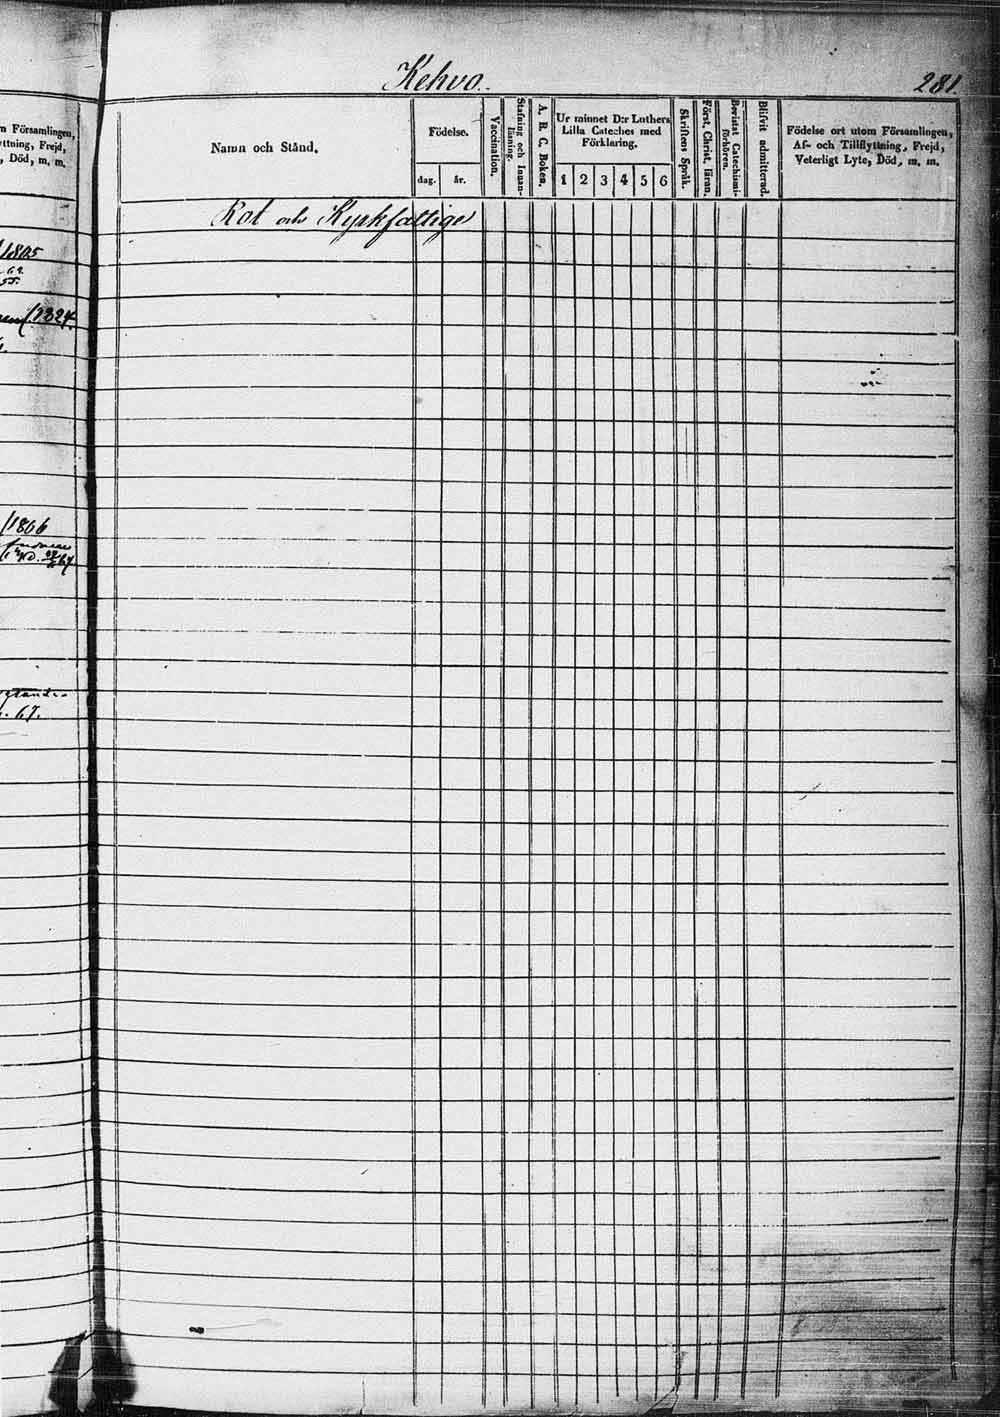 Kehvo.
281.
n Församlingen,
ttning, Frejd,
, Död, m. m.
Namn och Stånd.
Födelse.
dag.
år.
Vaccination.
Stafning och Innan-
läsning.
A. B. C. Boken.
Ur minnet D:r Luthers
Lilla Cateches med
Förklaring.
1 2 3 4 5 6
Skriftens Språk.
Först. Christ. läran.
Bevistat Catechismi-
förhören.
Blifvit admitterad.
Födelse ort utom Församlingen,
Af- och Tillflyttning, Frejd,
Veterligt Lyte, Död, m. m.
Rot och Kyrkfattige
/1805
/1824.
/1866
67.
. 67.